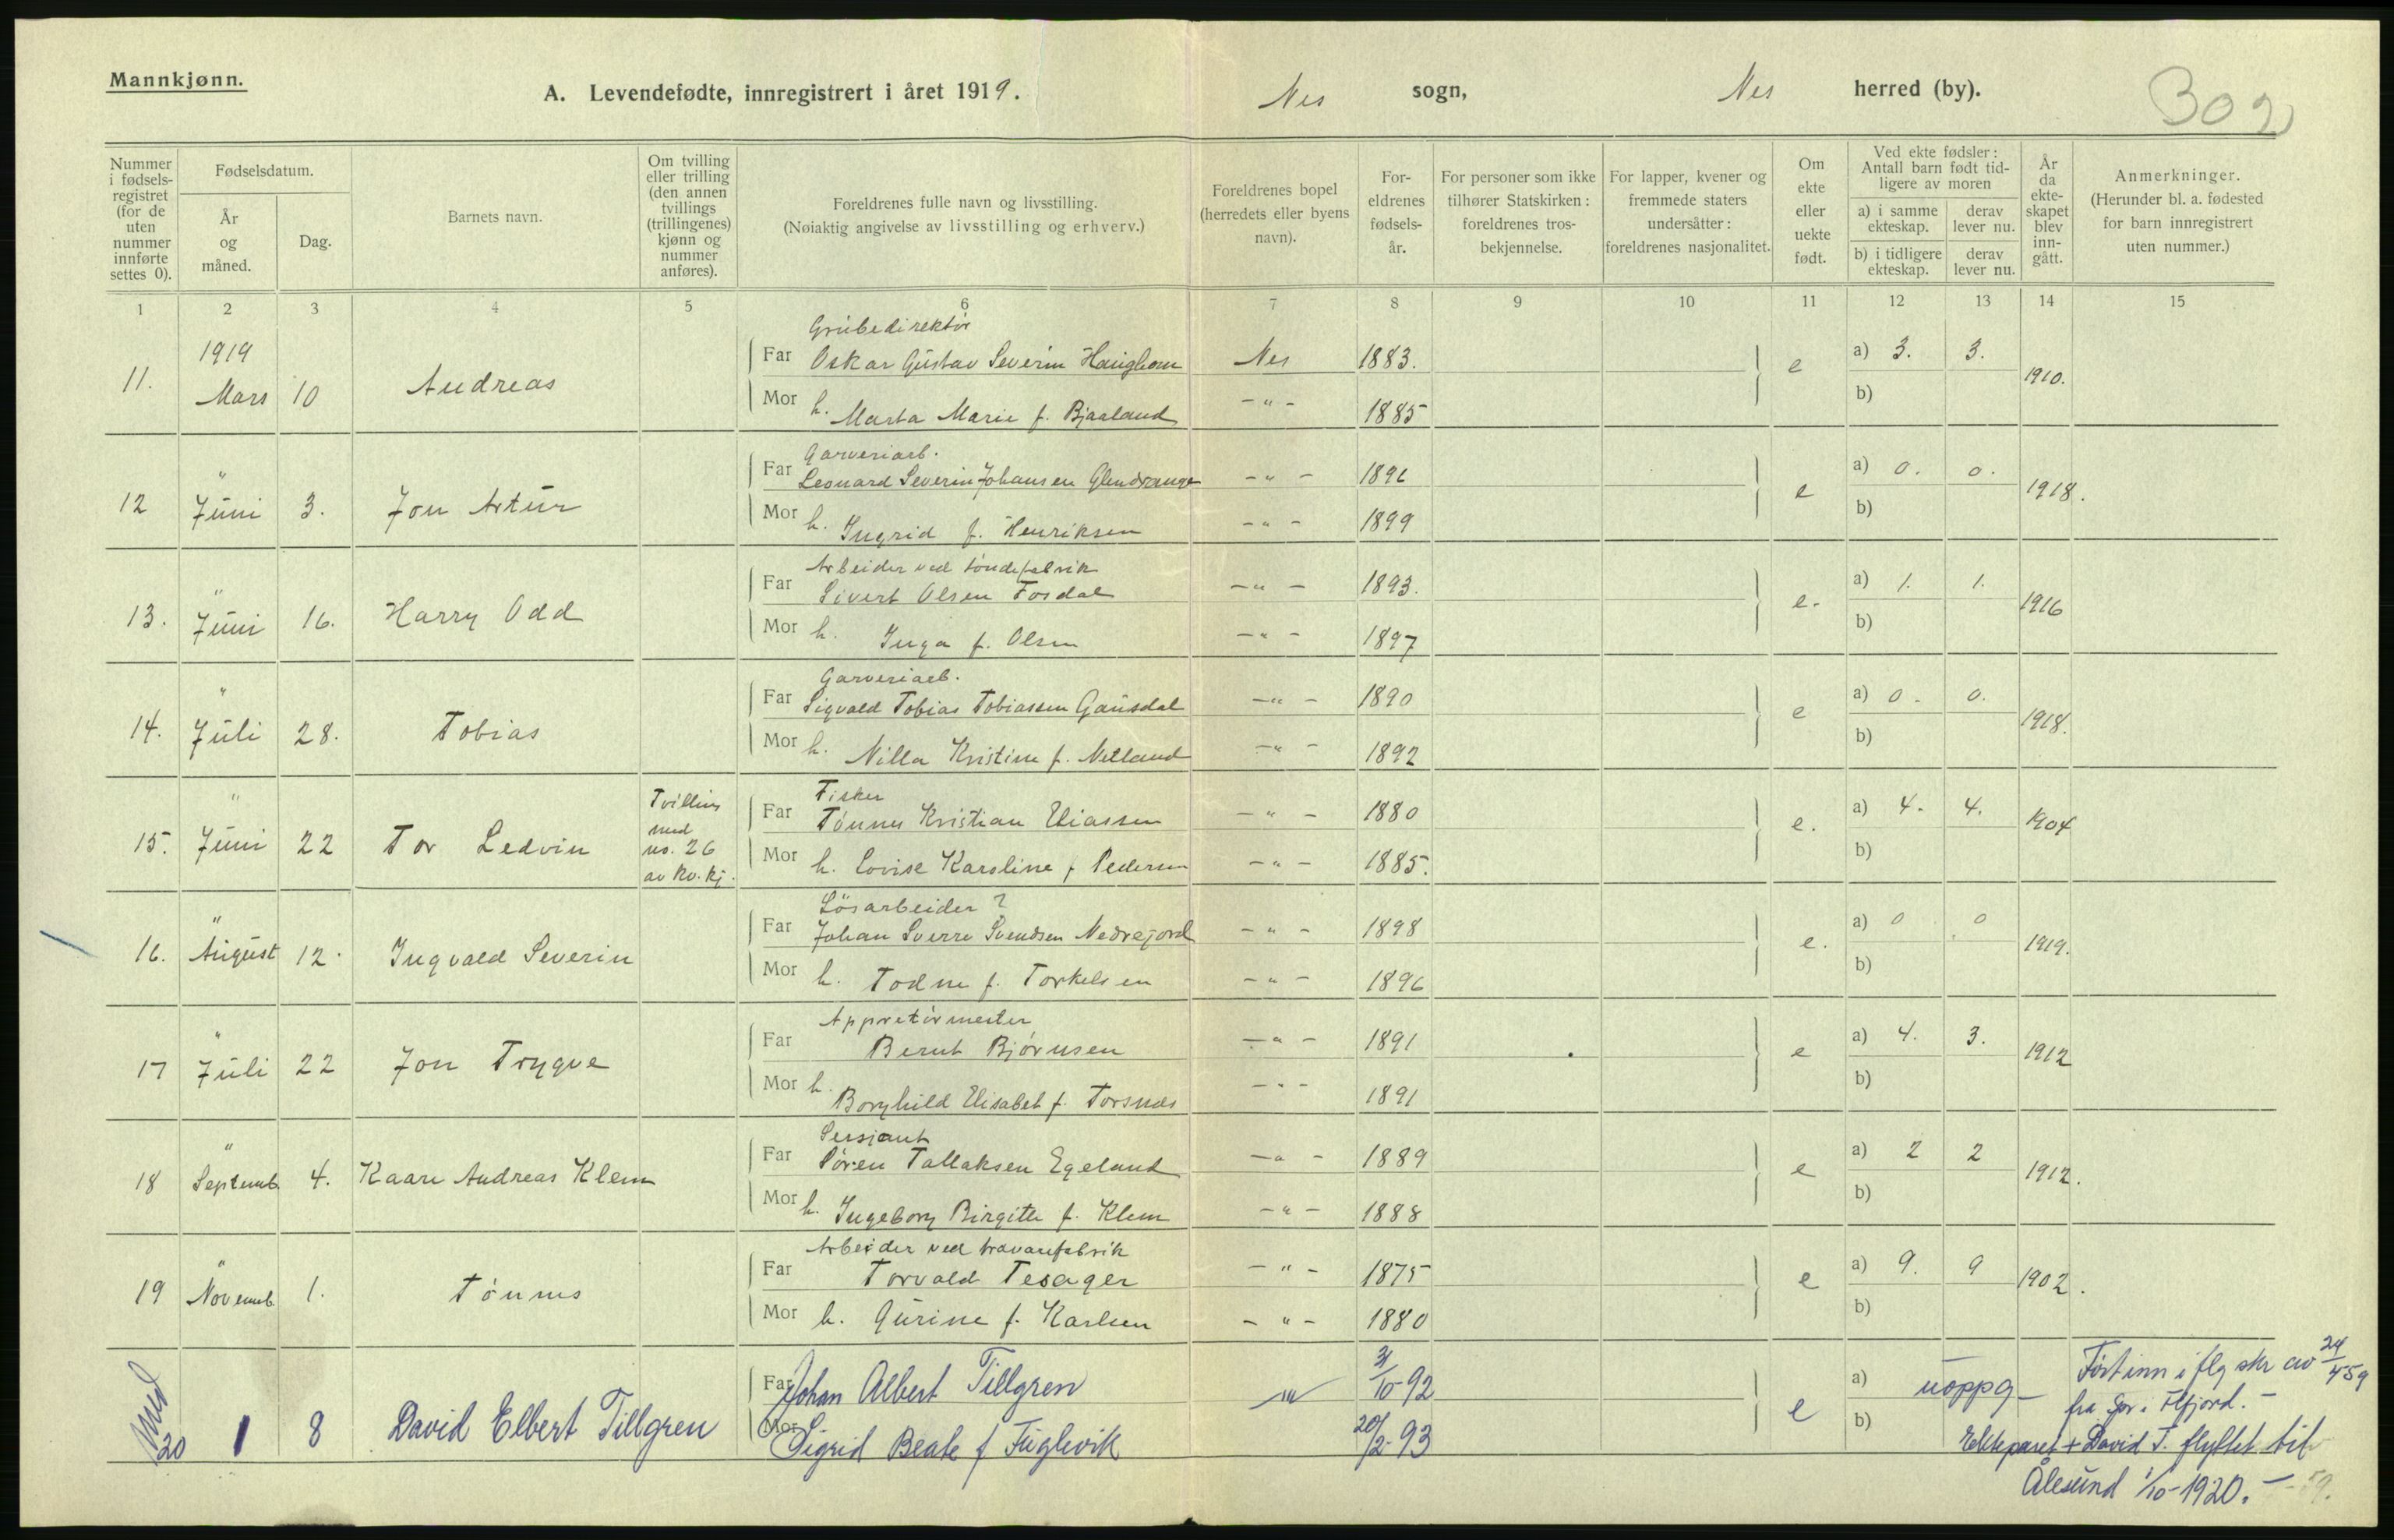 Mannkjønn.
A. Levendefødte, innregistrert i året 1919.
Nes sogn,
Nes herred (by).
302
Nummer i fødsels-registret (for de uten nummer innførte settes 0).
Fødselsdatum.
År og måned.
Dag.
Barnets navn.
Om tvilling eller trilling (den annen tvillings (trillingenes) kjønn og nummer anføres).
Foreldrenes fulle navn og livsstilling.
(Nøiaktig angivelse av livsstilling og erhverv.)
Foreldrenes bopel (herredets eller byens navn).
For-eldrenes fødsels-år.
For personer som ikke tilhører Statskirken: foreldrenes tros-bekjennelse.
For lapper, kvener og fremmede staters undersåtter: foreldrenes nasjonalitet.
Om ekte eller uekte født.
Ved ekte fødsler: Antall barn født tid-ligere av moren
a) i samme ekteskap.
derav lever nu.
b) i tidligere ekteskap.
derav lever nu.
År da ekte-skapet blev inn-gått.
Anmerkninger.
(Herunder bl. a. fødested for barn innregistrert uten nummer.)
1 2 3 4 5 6 7 8 9 10 11 12 13 14 15
Grubedirektör
11. 1919 Mars 10 Andreas
Far Oskar Gustav Severin Haughom Nes 1883. e a) 3. 3. 1910.
Mor h. Marta Marie f. Bjaaland -"- 1885 b)
Garveriarb.
12 " Juni 3. Jon Artur
Far Leonard Severin Johansen Glendrange -"- 1896 e a) 0. 0. 1918.
Mor h. Ingrid f. Henriksen -"- 1899 b)
Arbeider ved töndefabrik
13. " Juni 16. Harry Odd
Far Sivert Olsen Fosdal -"- 1893. e. a) 1. 1. 1916
Mor h. Inga f. Olsen -"- 1897 b)
Garveriarb.
14. " Juli 28. Tobias
Far Sigvald Tobias Tobiassen Gausdal -"- 1890 e a) 0. 0. 1918.
Mor h. Nilla Kristine f. Netland -"- 1892 b)
Fisker
15. " Juni 22 Tor Ledvin Tvilling med no. 26 av kv. kj.
Far Tönnes Kristian Eliassen -"- 1880 e. a) 4. 4. 1904
Mor h. Lovise Karoline f Pedersen -"- 1885. b)
Lösarbeider ?
16. " August 12. Ingvald Severin
Far Johan Sverre Svendsen Nedrejord -"- 1898 e. a) 0 0 1919.
Mor h. Todne f. Torkelsen -"- 1896 b)
Appretörmester
17 " Juli 22 Jon Trygve
Far Bernt Björnsen -"- 1891 e a) 4. 3. 1912
Mor h. Borghild Elisabet f. Torsnes -"- 1891 b)
Sersjant
18 " Septemb. 4. Kaare Andreas Klem
Far Sören Tallaksen Egeland -"- 1889 e a) 2 2 1912.
Mor h. Ingeborg Birgitte f. Klem -"- 1888 b)
Arbeider ved trævarefabrik
19 " Novemb. 1. Tönnes
Far Torvald Tesager -"- 1875 e a) 9. 9 1902.
Mor h. Gurine f. Karlsen -"- 1880 b)
20 1 8 David Elbert Tillgren
Far Johan Albert Tillgren -"- 31/10-92 e a) uoppg-
Mor Sigrid Beate f Fuglevik 20/2-93 b)
Först inn iflg skr av 24/4 59
fra Spr. i Flfjord.-
Ekteparet + David T. flyttet til
Ålesund 1/10-1920. - 59.